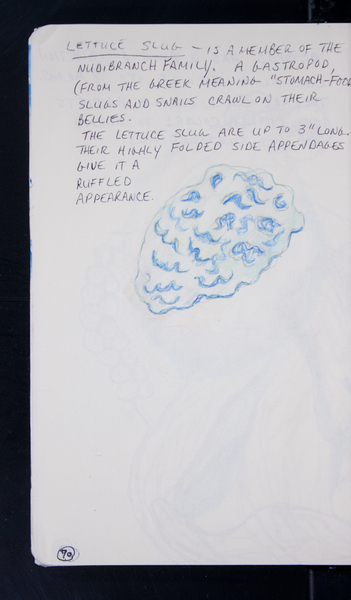 LETTUCE SLUG - IS A MEMBER OF THE
NUDIBRANCH FAMILY. A GASTROPOD,
(FROM THE GREEK MEANING "STOMACH-FOO
SLUGS AND SNAILS CRAWL ON THEIR
BELLIES.
THE LETTUCE SLUG ARE UP TO 3" LONG.
THEIR HIGHLY FOLDED SIDE APPENDAGES
GIVE IT A
RUFFLED
APPEARANCE.
90